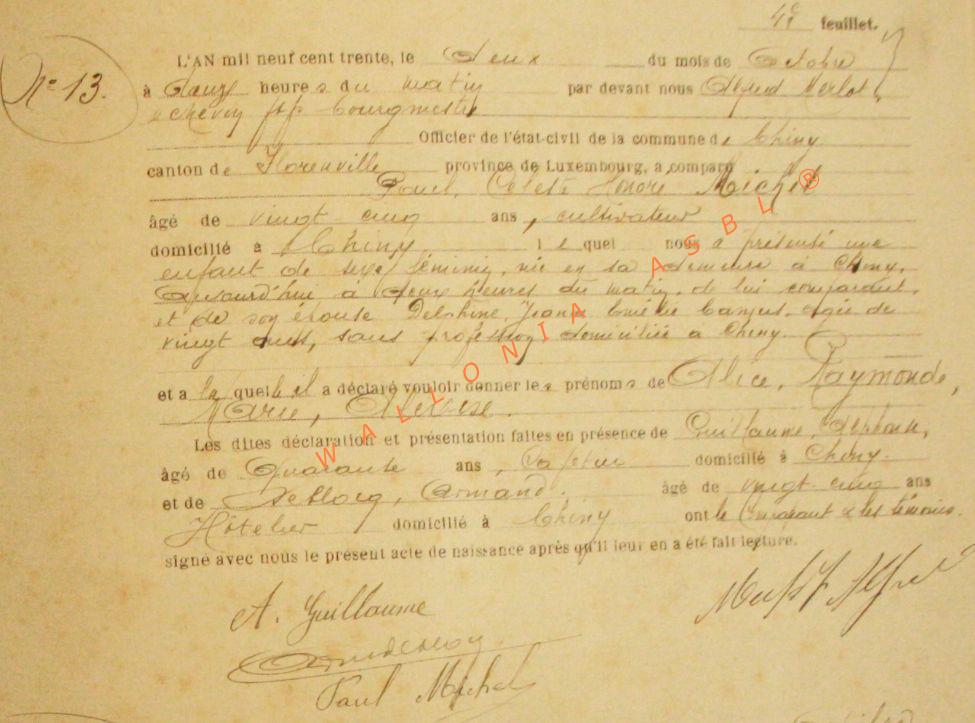 4e feuillet.
N° 13.
L'AN mil neuf cent trente, le deux du mois de Octobre
à heures du matin par devant nous Alfred Merlot,
bourgmestre
Officier de l'état-civil de la commune de Chiny
canton de Florenville province de Luxembourg, a comparu
Paul, Célest Honoré Michel
âgé de vingt cinq ans, cultivateur
domicilié à Chiny lequel nous a présenté une
enfant de sexe féminin, née en sa demeure à Chiny,
aujourd'hui à deux heures du matin, de lui comparant,
et de son épouse Delphine, Jeanne Emélie agée de
vingt ans, sans profession domiciliée à Chiny.
et a laquelle il a déclaré vouloir donner les prénoms de Alice, Raymonde,
Marie,
Les dites déclaration et présentation faites en présence de Guillaume, Alphonse,
âgé de Quarante ans, domicilié à Chiny.
et de Armand. âgé de vingt cinq ans
Hôtelier domicilié à Chiny ont le Comparant & les témoins.
signé avec nous le présent acte de naissance après qu'il leur en a été fait lecture.
A. Guillaume
Paul Michel
WALLONIA ASBL ®